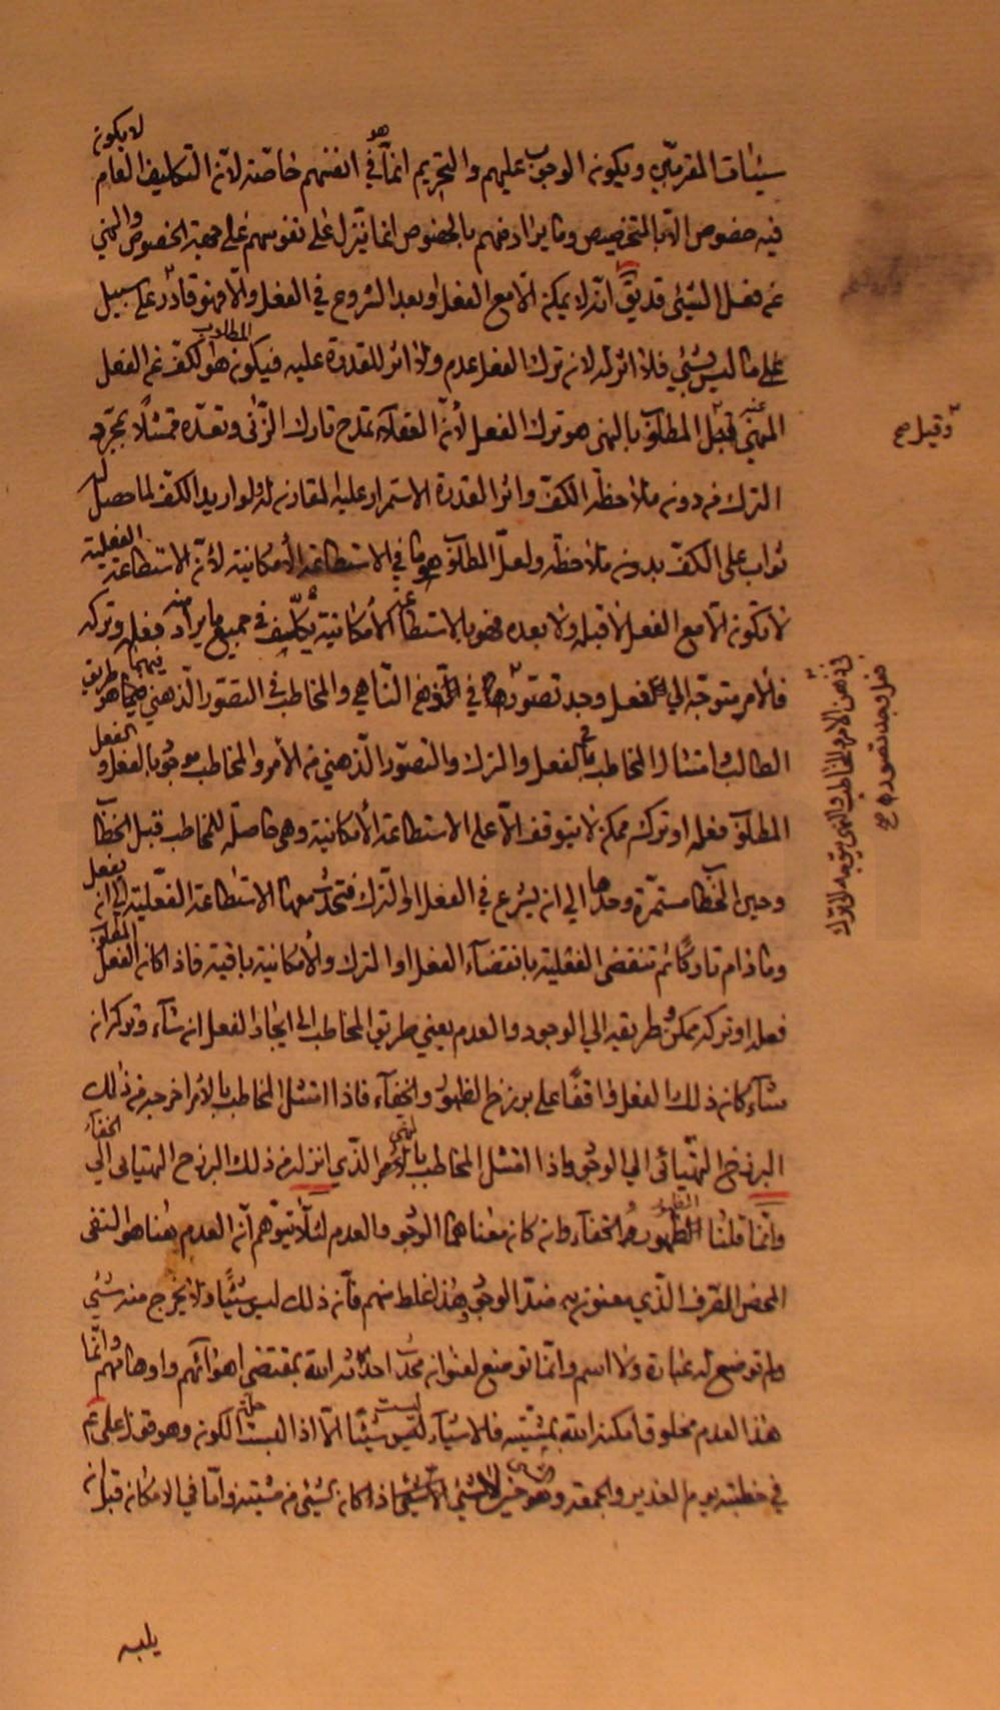 سيئات المقربين ويكون الوجوب عليهم والتحريم انما هو في انفسهم خاصّة لانّ التكليف العام لا يكون
فيه خصوص الا بالتخصيص وما يراد منهم بالخصوص انما يتنزل على نفوسهم على جهة الخصوص والنهي
عن فعل الشيئ قد يق انّه لا يمكن الّا مع الفعل او بعد الشروع في الفعل والّا فهو قادر على سبيل
على ما ليس بشيئ فلا اثر له لان ترك الفعل عدم ولا اثر للقدرة عليه فيكون المطلوب هو الكفّ عن الفعل
المنهي عنه قيل المطلوب بالنهي هو ترك الفعل لأنّ العقلاء تمدح تارك الزنى وتعدّه ممتثلًا بمجرّد
الترك من دون ملاحظة الكفّ واثر القدرة الاستمرار عليه المقارنة له ولو اريد الكفّ لما حصل له
ثواب على الكفّ بدون ملاحظة ولعلّ المطلوب هو ما في الاستطاعة الأمكانية لأنّ الاستطاعة الفعلية
لا تكون الّا مع الفعل لا قبله ولا بعده فهو بالاستطاعة الأمكانية مكلّف في جميع ما يراد منه فعله وتركه
فالأمر متوجّه الى الفعل وجد تصوّرها في الذهن الناهي والمخاطب في التصوّر الذهني فيهما هو طريق
الطالب وامتثال المخاطب بالفعل والترك والتصوّر الذهني من الأمر والمخاطب موجُود بالفعل والفعل
المطلوب فعله او تركه ممكن لا يتوقف الّا على الاستطاعة الأمكانية وهي حاصلة للمخاطب قبل الخطاب
وحين الخطاب مستمّرة وحدها الى ان يشرع في الفعل او الترك فتحدث معها الاستطاعة الفعّلية الى ان يفعل
وما دام تاركًا ثم تنقضى الفعلية بانقضآء الفعل او الترك والأمكانية باقية فاذا كان الفعل المطلوب
فعله او تركه ممكن طريقه الى الوجود والعدم يعني طريق المخاطب الى ايجاد الفعل ان شآء وتركه ان
شآء كان ذلك الفعل واقفًا على برزخ الظهور والخفآء فاذا امتثل المخاطب بالأمر اخرجه من ذلك
البرزخ الهيّائى الى الوجود واذا امتثل المخاطب بالنهى الذّي انزله من ذلك البرزخ الهيائى الى الخفآء
وانّما قلنا الظهور والخفآء وان كان معناهما الوجود والعدم لئلّا يتوهّم انّ العدم هٰنا هو النفى
المحض الصّرف الذّي يعنون به ضدّ الوجود وهٰذا غلط منهم فانّ ذلك ليس شيئًا ولا يخرج منه شيئ
ولم توضع له عبارة ولا اسم وانّما توضع لعنوان محدث احدثه اللّه بمقتضى اهوائهم واوهامهم وانّما
هٰذا العدم مخلوق امكنه اللّه بمشيّته فالاشيآء ليست شيئًا الّا اذا البست حلة الكون وهو قول على ع
في خطبته يوم الغدير والجمعة وهو منشئ الشيئ اذ كان الشيئ من مشيّته وامّا في الامكان قبل ان
يلبسه
وقيل صح
في ذهن الآمر والمخاطب والنهي يتوجه الى ترك
فعل وجد تصوره صح